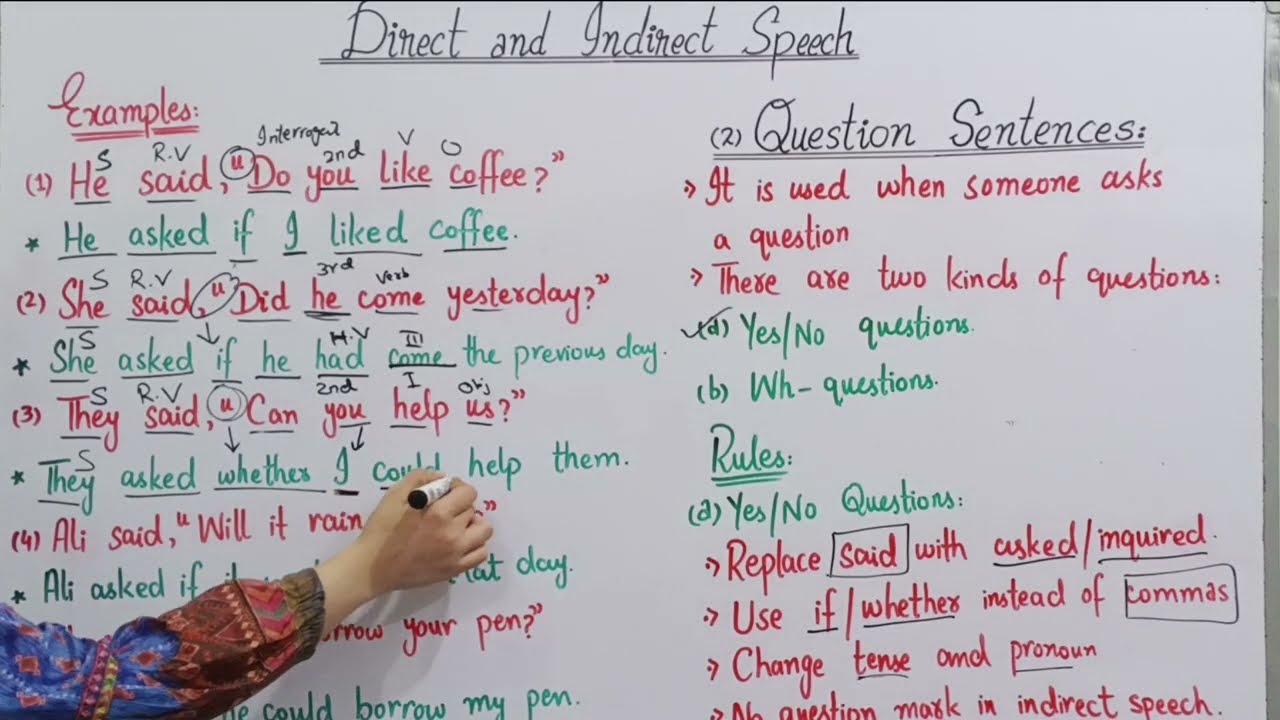 Direct and Indirect Speech
Examples:
Interrogat
S R.V 2nd V O
(1) He said, "Do you like coffee?"
* He asked if I liked coffee.
S R.V 3rd Verb
(2) She said, "Did he come yesterday?"
S H.V III
* She asked if he had come the previous day.
S R.V 2nd I Obj
(3) They said, "Can you help us?"
S
* They asked whether I could help them.
(4) Ali said, "Will it rain
* Ali asked if it that day.
borrow your pen?"
he could borrow my pen.
(2) Question Sentences:
It is used when someone asks
a question
There are two kinds of questions:
(a) Yes/No questions.
(b) Wh-questions.
Rules:
(a) Yes/No Questions:
Replace said with asked/inquired.
Use if/whether instead of commas
Change tense and pronoun
No question mark in indirect speech.